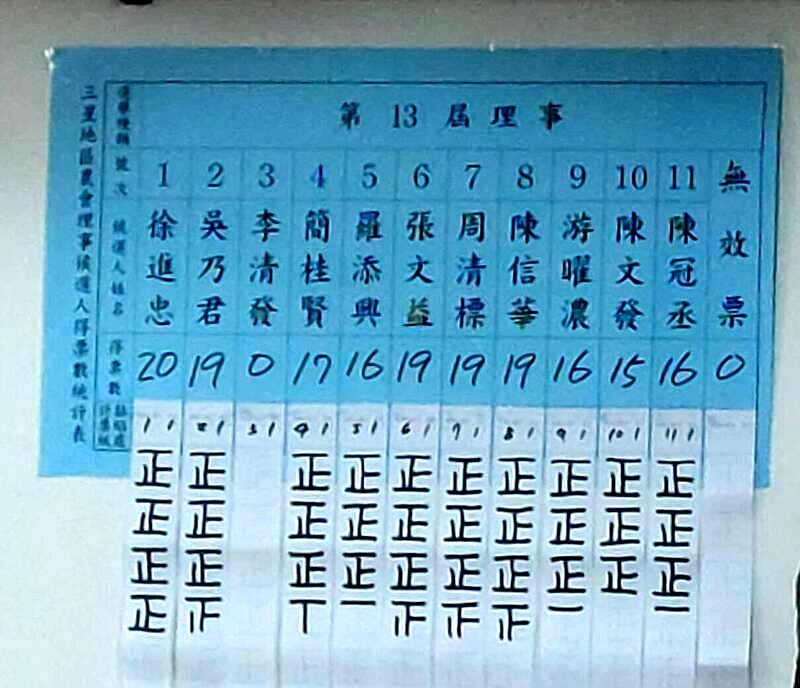 三星地區農會理事候選人得票數統計表
選舉種類 第 13 屆理事
號次 1 2 3 4 5 6 7 8 9 10 11 無效票
候選人姓名 徐進忠 吳乃君 李清發 簡桂賢 羅添興 張文益 周清標 陳信華 游曜濃 陳文發 陳冠丞
得票數 20 19 0 17 16 19 19 19 16 15 16 0
黏貼處 計票紙
1 1 2 1 3 1 4 1 5 1 6 1 7 1 8 1 9 1 10 1 11 1
正 正 正 正 正 正 正 正 正 正
正 正 正 正 正 正 正 正 正 正
正 正 正 正 正 正 正 正 正 正
正